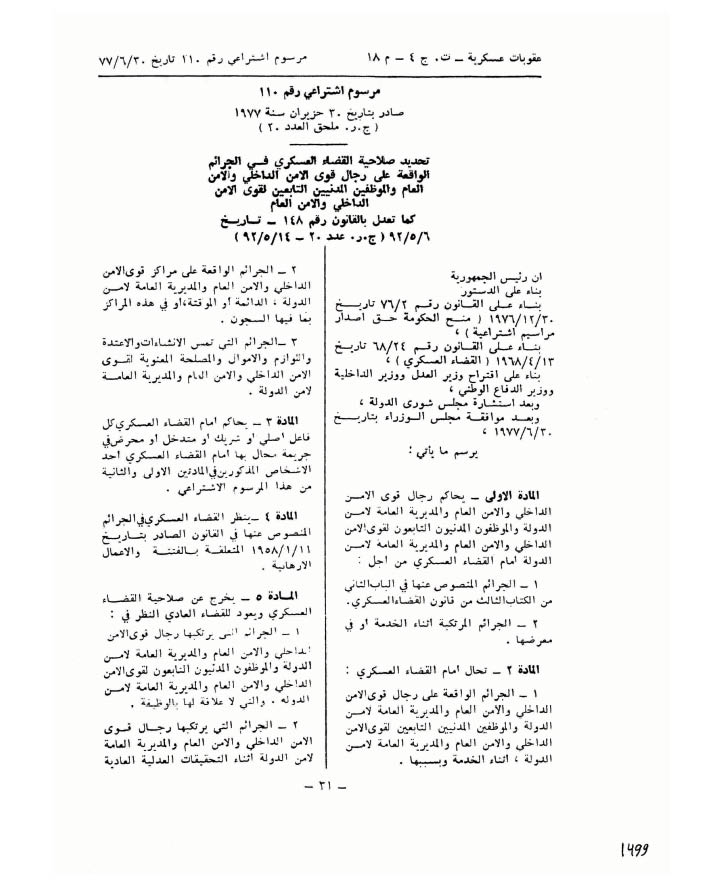 عقوبات عسكرية ــ ت. ج ٤ ــ م ١٨
مرسوم اشتراعي رقم ١١٠ تاريخ ٧٧/٦/٣٠
مرسوم اشتراعي رقم ١١٠
صادر بتاريخ ٣٠ حزيران سنة ١٩٧٧
( ج.ر. ملحق العدد ٢٠ )
تحديد صلاحية القضاء العسكري فـي الجرائم
الواقعة على رجال قوى الامن الداخلي والامن
العام والموظفين المدنيين التابعين لقوى الامن
الداخلي والامن العام
كما تعدل بالقانون رقم ١٤٨ ــ تـاريـخ
٩٢/٥/٦ ( ج.ر. عدد ٢٠ ــ ٩٢/٥/١٤ )
ان رئيس الجمهورية
بناء على الدستور
بنـاء عـلى القانون رقـم ٧٦/٢ تاريـخ
١٩٧٦/١٢/٣٠ ( منـح الحكومة حـق اصدار
مراسيم اشتراعية ) ،
بنـاء عـلى القانون رقـم ٦٨/٢٤ تاريخ
١٩٦٨/٤/١٣ ( القضاء العسكري ) ،
بناء على اقتراح وزير العدل ووزير الداخلية
ووزير الدفاع الوطني ،
وبعد استشارة مجلس شورى الدولة ،
وبعـد موافقـة مجلس الـوزراء بتاريـخ
١٩٧٧/٦/٣٠ ،
يرسم ما يأتي :
المادة الاولى ــ يحاكم رجال قوى الامـن
الداخلي والامن العام والمديرية العامة لامـن
الدولة والموظفون المدنيون التابعون لقوى الامن
الداخلي والامن العام والمديرية العامة لامـن
الدولة امام القضاء العسكري من اجل :
١ ــ الجرائم المنصوص عنها في الباب الثاني
من الكتاب الثالث من قانون القضاء العسكري.
٢ ــ الجرائم المرتكبة اثناء الخدمة او في
معرضها .
المادة ٢ ــ تحال امام القضاء العسكري :
١ ــ الجرائم الواقعة على رجال قوى الامن
الداخلي والامن العام والمديرية العامة لامـن
الدولة والموظفين المدنيين التابعين لقوى الامن
الداخلي والامن العام والمديرية العامة لامـن
الدولة ، اثناء الخدمة وبسببها .
٢ ــ الجرائم الواقعة على مراكز قوى الامن
الداخلي والامن العام والمديرية العامة لامـن
الدولة ، الدائمة او الموقتة، او في هذه المراكز
بما فيها السجون .
٣ ــ الجرائم التي تمس الانشاءات والاعتدة
واللوازم والاموال والمصلحة المعنوية لقـوى
الامن الداخلي والامن العام والمديرية العامـة
لامن الدولة .
المادة ٣ ــ يحاكم امام القضاء العسكري كل
فاعل اصلي او شريك او متدخل او محرض في
جريمة محال بها امام القضاء العسكري احد
الاشخاص المذكورين في المادتين الاولى والثانية
من هذا المرسوم الاشتراعي .
المادة ٤ ــ ينظر القضاء العسكري في الجرائم
المنصوص عنها في القانون الصادر بتـاريـخ
١٩٥٨/١/١١ المتعلقـة بـالفتنـة والاعمال
الارهابية .
المـادة ٥ ــ يخرج عن صلاحية القضـاء
العسكري ويعود للقضاء العادي النظر في :
١ ــ الجرائم التي يرتكبها رجال قوى الامن
الداخلي والامن العام والمديرية العامة لامـن
الدولة والموظفون المدنيون التابعون لقوى الامن
الداخلي والامن العام والمديرية العامة لامـن
الدولة . والتي لا علاقة لها بالوظيفة .
٢ ــ الجرائم التي يرتكبها رجـال قـوى
الامن الداخلي والامن العام والمديرية العامة
لامن الدولة اثناء التحقيقات العدلية العادية
ــ ٣١ ــ
1499